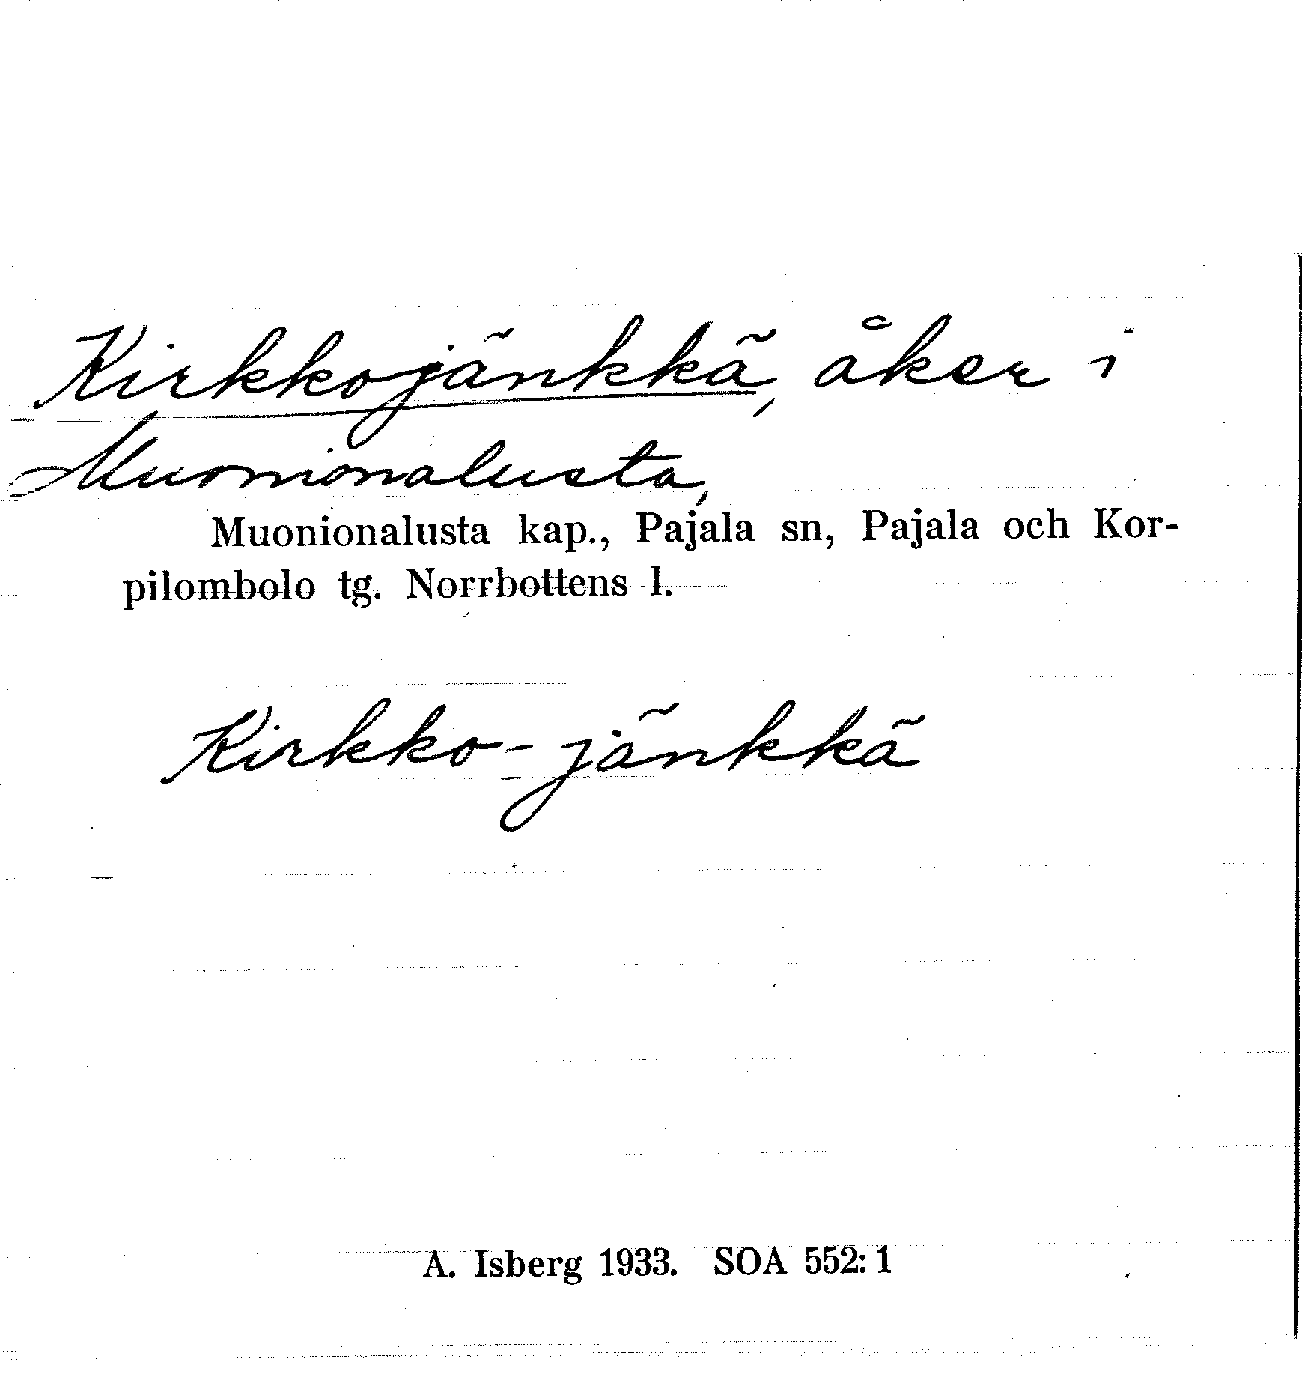 Kirkkojänkkä, åker i
Muonionalusta,
Muonionalusta kap., Pajala sn, Pajala och Kor-
pilombolo tg. Norrbottens l.
Kirkko-jänkkä
A. Isberg 1933. SOA 552:1